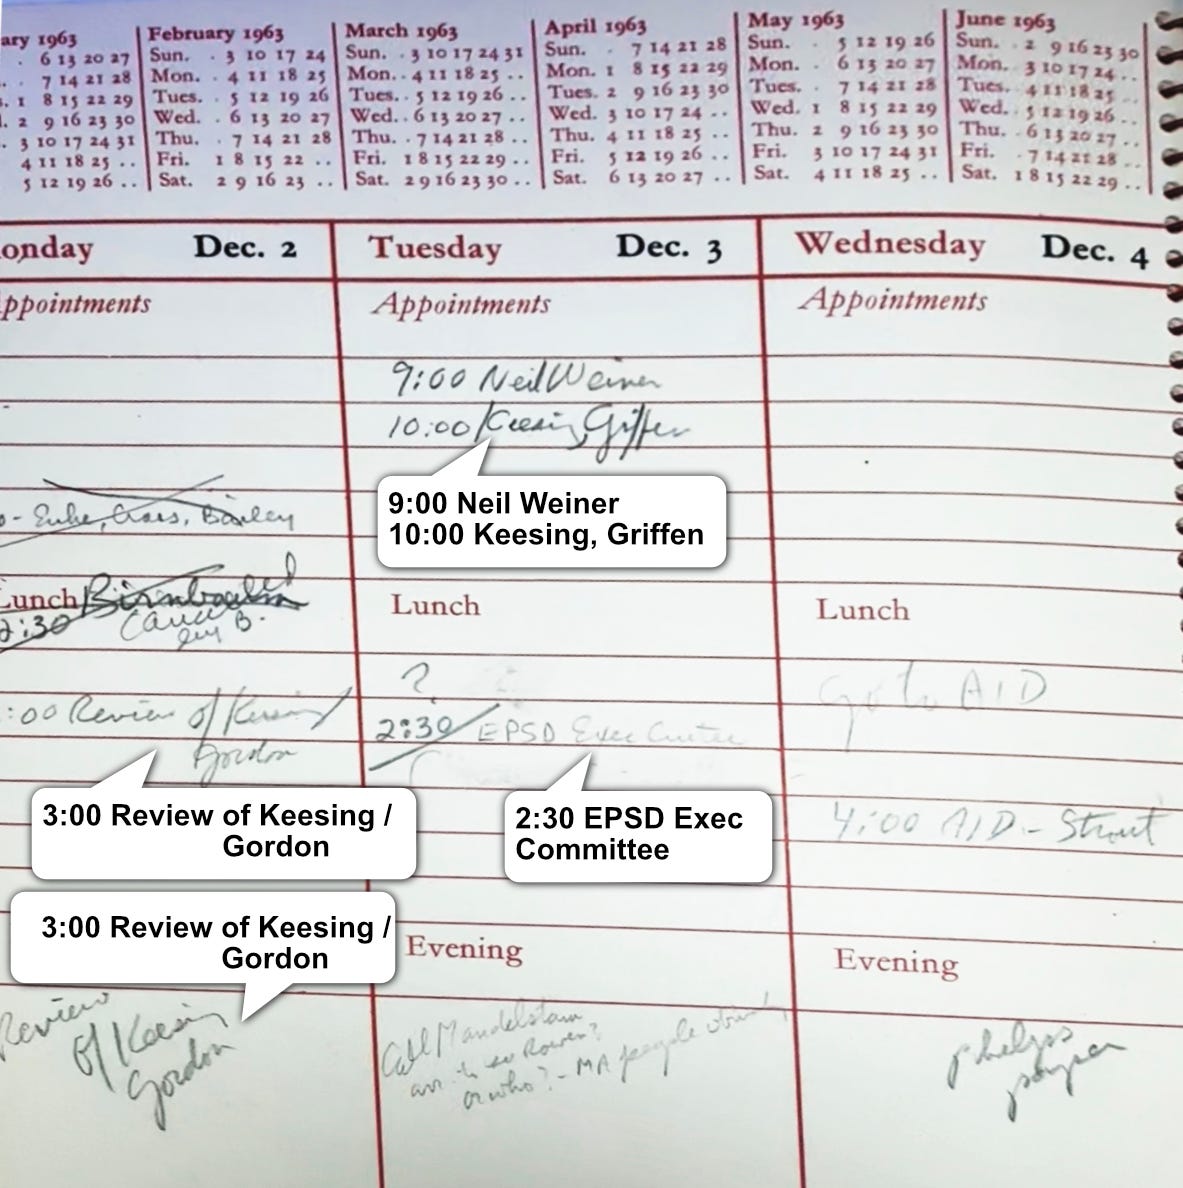 ary 1963
. 6 13 20 27
. . 7 14 21 28
s. 1 8 15 22 29
l. 2 9 16 23 30
. 3 10 17 24 31
4 11 18 25 . .
5 12 19 26 . .
February 1963
Sun. . 3 10 17 24
Mon. . 4 11 18 25
Tues. . 5 12 19 26
Wed. . 6 13 20 27
Thu. . 7 14 21 28
Fri. 1 8 15 22 . .
Sat. 2 9 16 23 . .
March 1963
Sun. . 3 10 17 24 31
Mon. . 4 11 18 25 . .
Tues. . 5 12 19 26 . .
Wed. . 6 13 20 27 . .
Thu. . 7 14 21 28 . .
Fri. 1 8 15 22 29 . .
Sat. 2 9 16 23 30 . .
April 1963
Sun. . 7 14 21 28
Mon. 1 8 15 22 29
Tues. 2 9 16 23 30
Wed. 3 10 17 24 . .
Thu. 4 11 18 25 . .
Fri. 5 12 19 26 . .
Sat. 6 13 20 27 . .
May 1963
Sun. . 5 12 19 26
Mon. . 6 13 20 27
Tues. . 7 14 21 28
Wed. 1 8 15 22 29
Thu. 2 9 16 23 30
Fri. 3 10 17 24 31
Sat. 4 11 18 25 . .
June 1963
Sun. . 2 9 16 23 30
Mon. . 3 10 17 24 . .
Tues. . 4 11 18 25 . .
Wed. . 5 12 19 26 . .
Thu. . 6 13 20 27 . .
Fri. . 7 14 21 28 . .
Sat. 1 8 15 22 29 . .
onday Dec. 2
ppointments
Bailey
Lunch Birnbaum
2:30
B.
:00 Review of Keesing /
Gordon
3:00 Review of Keesing /
Gordon
3:00 Review of Keesing /
Gordon
Review
of Keesing
Gordon
Tuesday Dec. 3
Appointments
9:00 Neil Weiner
10:00 Keesing, Griffen
9:00 Neil Weiner
10:00 Keesing, Griffen
Lunch
?
2:30 EPSD Exec
2:30 EPSD Exec
Committee
Evening
Call Mandelstam
or who? - MA people
Wednesday Dec. 4
Appointments
Lunch
Go to AID
4:00 AID - Strout
Evening
phelps